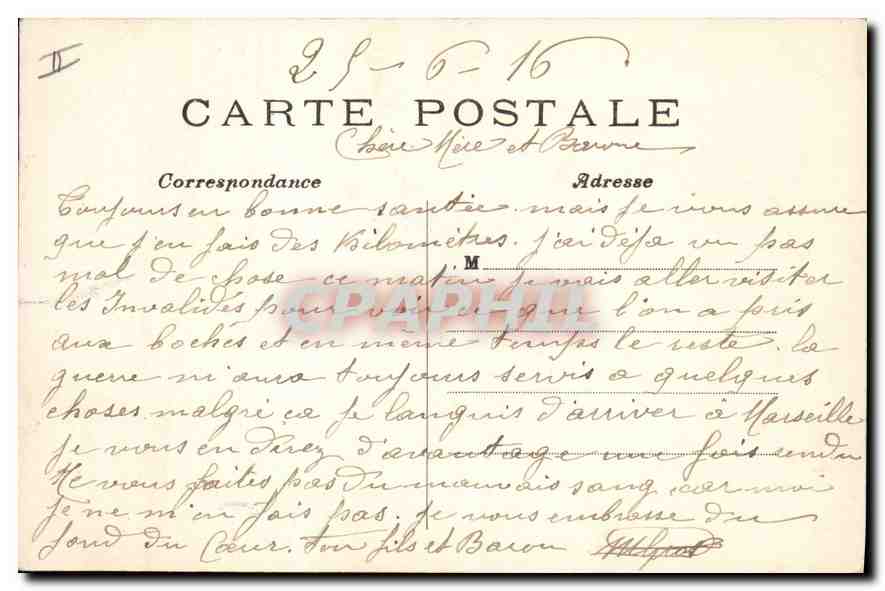 II
25-6-16
CARTE POSTALE
Chère Mère et Baronne
Correspondance Adresse
Toujours en bonne santée. mais je vous assure
que j'en fais des Kilomètres. j'ai déja vu pas
M
mal de chose ce matin je vais aller visiter
les Invalides pour voir ce que l'on a pris
CPAPHIL
aux boches et en même temps le reste. la
guerre m'aura toujours servis a quelques
choses malgré ca je languis d'arriver à Marseille
je vous en direz d'avantage une fois rendu
Ne vous faites pas du mauvais sang car moi
je ne m'en fais pas. je vous embrasse du
fond du Cœur. ton fils et Baron